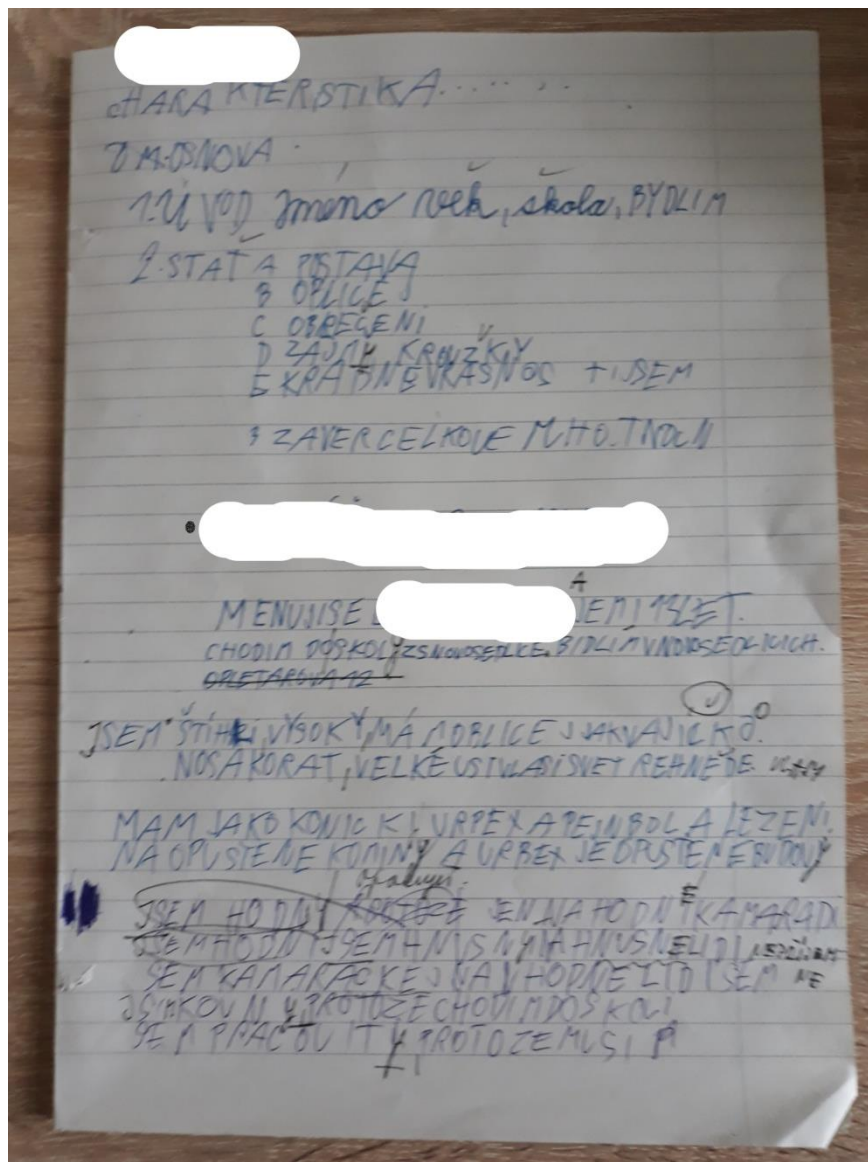 CHARAKTERISTIKA.......
OSNOVA
1. ÚVOD Jméno věk, škola, BYDLIM
2. STAŤ A POSTAVA
B OPLIČEJ
C OBREČENI
D ZAJMY, KROUŽKY
E KRABNEVRASNOS + IJSEM
3 ZAVER CELKOVE
MENUJI SE A JE MI 13 LET.
CHODIM DO ŠKOLY ZS NOVOSEDLICE. BIDLIM V NOVOSEDLICICH.
OPLETAROVA 12
JSEM ŠTÍHLI, VYSOKY, MÁM OBLICEJ JAK VAJÍCKO.
NOS AKORAT, VELKÉ USTI VLASI SVET REHNEDE. vlasy
MAM JAKO KONICKI, URPEX A PEINBOL A LEZENI
NA OPUSTENE KOMINY A URBEX JE OPUSTENE BUDOVY
JSEM HODNY JEN NA HODNÉ KAMARADI
JSEM HODNI JSEM HNUSNY NA HNUSNE LIDI
SEM KAMARACKEJ NA HODNE LIDI SEM NE
PROTOZE CHODIM DO SKOLI
SEM PRACOVITY PROTOZE MUSIM